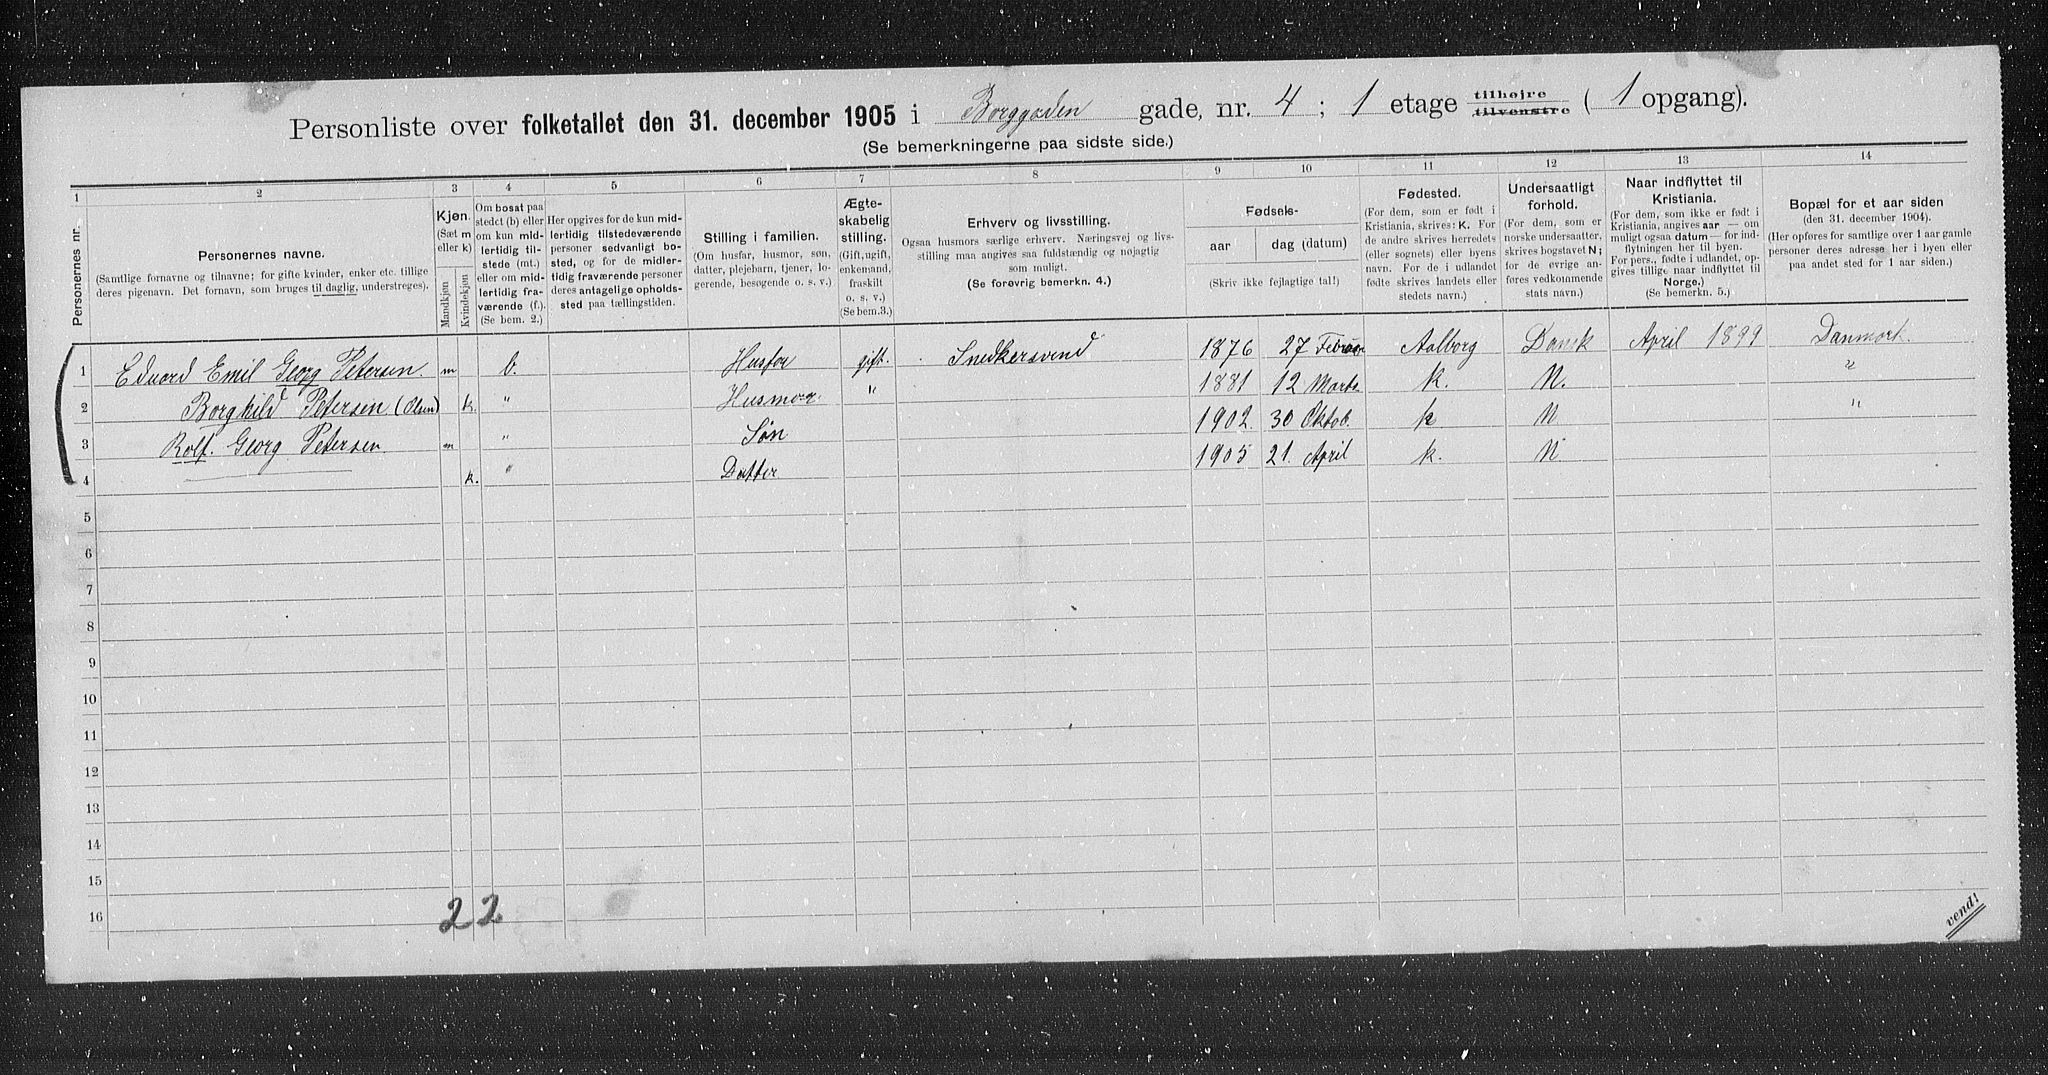 Personliste over folketallet den 31. december 1905 i Borggaden gade, nr. 4 ; 1 etage tilhøjre tilvenstre ( 1 opgang).
(Se bemerkningerne paa sidste side.)
1 2 3 4 5 6 7 8 9 10 11 12 13 14
Personernes nr.
Personernes navne.
(Samtlige fornavne og tilnavne; for gifte kvinder, enker etc. tillige
deres pigenavn. Det fornavn, som bruges til daglig, understreges).
Kjøn.
(Sæt m
eller k)
Mandkjøn
Kvindekjøn
Om bosat paa
stedet (b) eller
om kun mid-
lertidig til-
stede (mt.)
eller om mid-
lertidig fra-
værende (f.).
(Se bem. 2.)
Her opgives for de kun mid-
lertidig tilstedeværende
personer sedvanligt bo-
sted, og for de midler-
tidig fraværende personer
deres antagelige opholds-
sted paa tællingstiden.
Stilling i familien.
(Om husfar, husmor, søn,
datter, plejebarn, tjener, lo-
gerende, besøgende o. s. v.)
Ægte-
skabelig
stilling.
(Gift, ugift,
enkemand,
fraskilt
o. s. v.)
(Se bem.3.)
Erhverv og livsstilling.
Ogsaa husmors særlige erhverv. Næringsvej og livs-
stilling maa angives saa fuldstændig og nøjagtig
som muligt.
(Se forøvrig bemerkn. 4.)
Fødsels-
aar
dag (datum)
(Skriv ikke fejlagtige tal!)
Fødested.
(For dem, som er født i
Kristiania, skrives: K. For
de andre skrives herredets
(eller sognets) eller byens
navn. For de i udlandet
fødte skrives landets eller
stedets navn.)
Undersaatligt
forhold.
(For dem, som er
norske undersaatter,
skrives bogstavet N;
for de øvrige an-
føres vedkommende
stats navn.)
Naar indflyttet til
Kristiania.
(For dem, som ikke er født i
Kristiania, angives aar — om
muligt ogsaa datum — for ind-
flytningen her til byen.
For pers., fødte i udlandet, op-
gives tillige naar indflyttet til
Norge.)
(Se bemerkn. 5.)
Bopæl for et aar siden
(den 31. december 1904).
(Her opføres for samtlige over 1 aar gamle
personer deres adresse her i byen eller
paa andet sted for 1 aar siden.)
1 Eduard Emil Georg Petersen. m b. Husfar gift. Snedkersvend 1876 27 Februar Aalborg Dansk April 1899 Danmark
2 Borghild Petersen (Olsen) k. " Husmor " 1881 12 Marts K. N. "
3 Rolf. Georg Petersen m " Søn 1902. 30 Oktob. K N "
4 k. " Datter 1905 21. April K. N
5
6
7
8
9
10
11
12
13
14
15
16
2 2
vend!